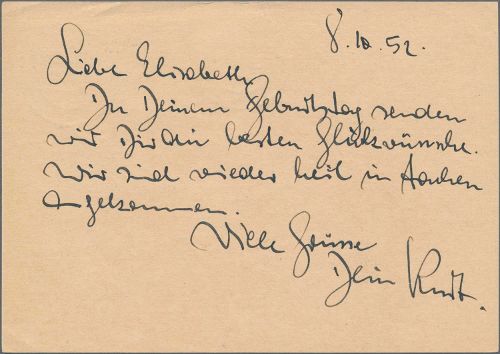 8.10.52.
Liebe Elisabeth,
Zu Deinem Geburtstag senden
wir Dir die besten Glückwünsche.
Wir sind wieder heil in Aachen
angekommen.
Viele Grüsse
Dein